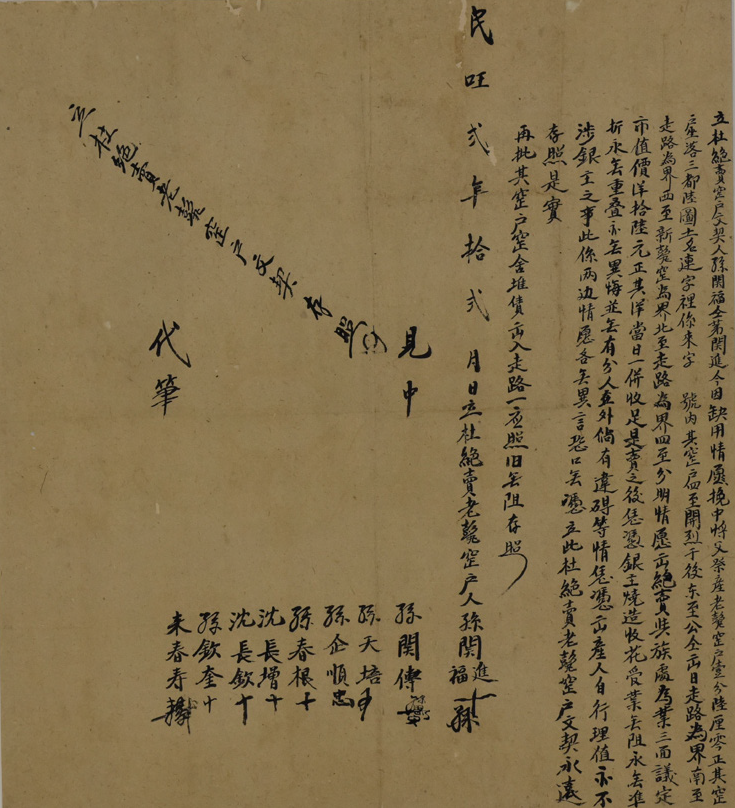 立杜絕賣窑户文契人孫関福仝弟関進今因缺用情愿挽中將父祭產老甏窑户壹分陸厘零正其窑
户座落三都陸圖土名連字裡係來字 號内其窑户四至開烈于後东至公仝出日走路為界南至
走路為界西至新甏窑為界北至走路為界四至分明情愿出絕賣與族處為業三面議定
市值價洋拾陸元正其洋當日一併收足是賣之後恁憑銀主燒造收花受業无阻永无準
折永无重叠亦无異悔並无有分人立外倘有違碍等情恁憑出產人自行理值亦不
涉銀主之事此係两边情愿各无異言恐口无憑立此杜絕賣老甏窑户文契永遠
存照是實
再批其窑户窑舍堆債出入走路一应照旧无阻存照
民国弍年拾弍月日立杜絕賣老甏窑户人孫関福進十孫
見中 孫関傳
孫天培
孫企順忠
孫春根十
沈長增十
沈長欽十
孫欽奎十
代筆 来春寿
立杜絕賣老甏窑户文契存照